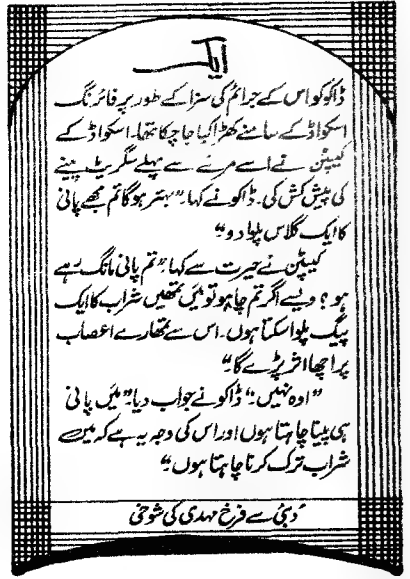 ایک
ڈاکو کو اس کے جرائم کی سزا کے طور پر فائرنگ
اسکواڈ کے سامنے کھڑا کیا جا چکا تھا۔ اسکواڈ کے
کیپٹن نے اسے مرنے سے پہلے سگریٹ پینے
کی پیش کش کی۔ ڈاکو نے کہا۔ "بہتر ہوگا تم مجھے پانی
کا ایک گلاس پلوا دو۔"
کیپٹن نے حیرت سے کہا۔ "تم پانی مانگ رہے
ہو؟ ویسے اگر تم چاہو تو میں تمھیں شراب کا ایک
پیگ پلوا سکتا ہوں۔ اس سے تمھارے اعصاب
پر اچھا اثر پڑے گا۔"
"اوہ نہیں۔" ڈاکو نے جواب دیا۔ "میں پانی
ہی پینا چاہتا ہوں اور اس کی وجہ یہ ہے کہ میں
شراب ترک کرنا چاہتا ہوں۔"
دُبئی سے فرخ مہدی کی شوخی